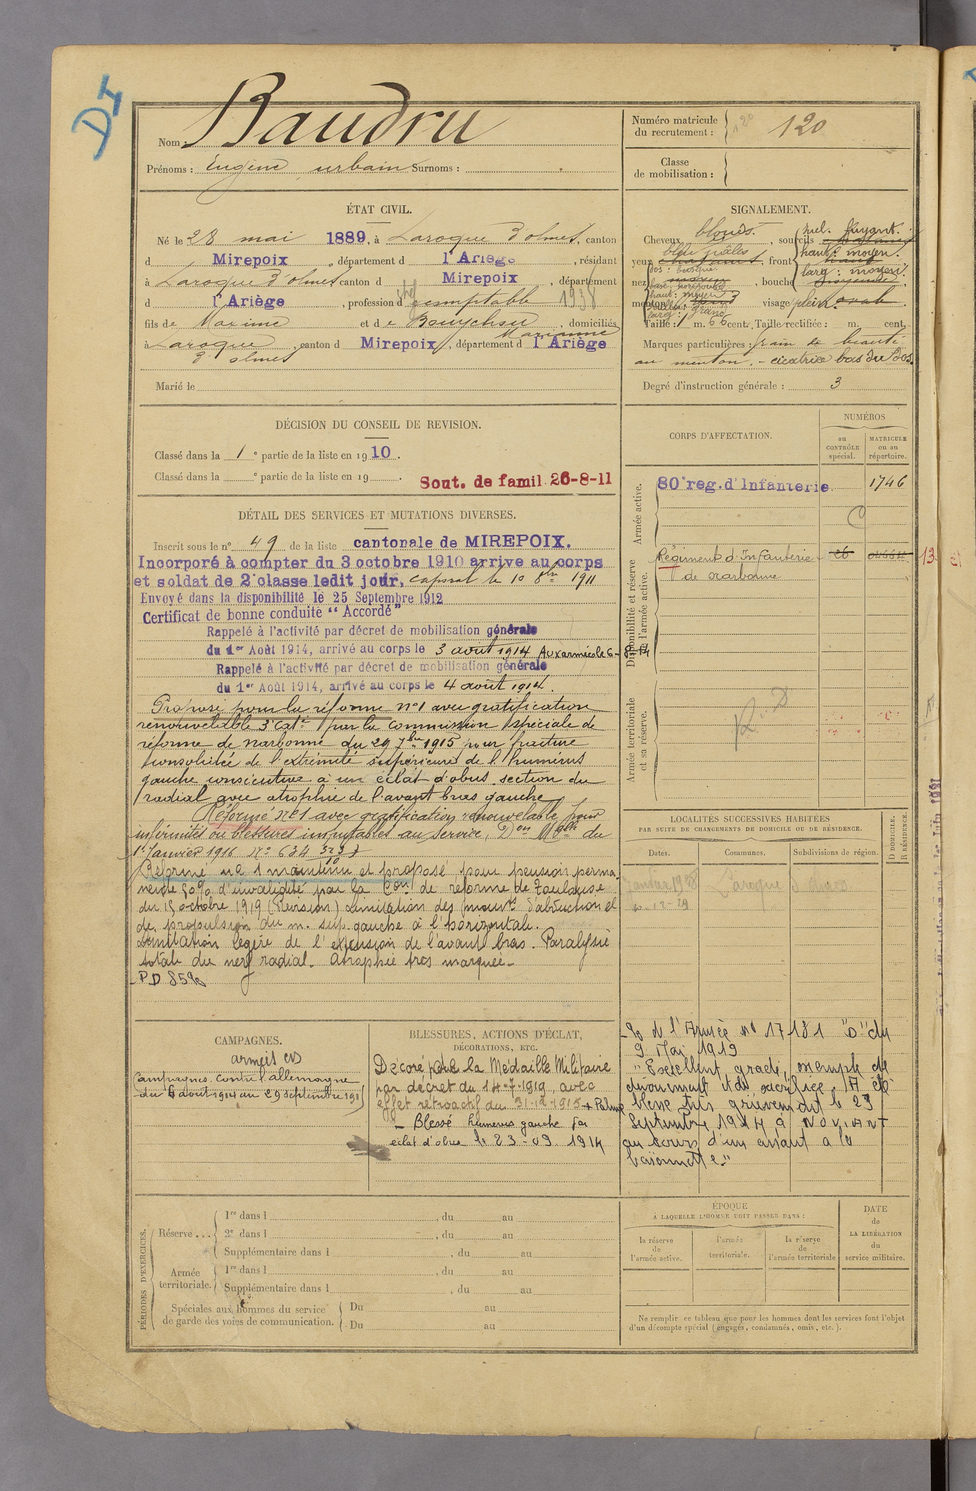 DI
Nom Baudru
Prénoms : Eugène urbain Surnoms :
Numéro matricule du recrutement : 120 120
Classe de mobilisation :
ÉTAT CIVIL.
Né le 28 mai 1889, à Laroque d'olmes, canton
d Mirepoix, département d l'Ariège, résidant
à Laroque d'olmes canton d Mirepoix, département
d l'Ariège, profession d comptable 1938
fils de Maxime et de Bouychou Marianne, domiciliés
à Laroque d'olmes, canton d Mirepoix, département d l'Ariège
Marié le
SIGNALEMENT.
Cheveux blonds. , sourcils
yeux bleu pâles , front
incl. fuyant.
haut : moyen.
larg : moyen.
nez dos : busqué
base : horizontale
haut : moyen
larg : grand
, bouche moyenne
menton rond visage plein ovale
Taille : 1 m. 66 cent. Taille rectifiée : m. cent.
Marques particulières : grain de beauté
au menton. - cicatrice bas du dos.
Degré d'instruction générale : 3
DÉCISION DU CONSEIL DE REVISION.
Classé dans la 1e partie de la liste en 1910.
Classé dans la e partie de la liste en 19 .
Sout. de famil. 26-8-11
CORPS D'AFFECTATION.
NUMÉROS
au CONTRÔLE spécial.
MATRICULE ou au répertoire.
Armée active.
80e reg. d'Infanterie 1746
Disponibilité et réserve de l'armée active.
Régiment d'Infanterie
de Narbonne
Armée territoriale et sa réserve.
R. D
DÉTAIL DES SERVICES ET MUTATIONS DIVERSES.
Inscrit sous le n° 49 de la liste cantonale de MIREPOIX.
Incorporé à compter du 3 octobre 1910 arrive au corps
et soldat de 2e classe ledit jour, caporal le 10 8bre 1911
Envoyé dans la disponibilité le 25 Septembre 1912
Certificat de bonne conduite "Accordé"
Rappelé à l'activité par décret de mobilisation générale
du 1er Août 1914, arrivé au corps le 3 août 1914 Aux armées le 6-8-14
Rappelé à l'activité par décret de mobilisation générale
du 1er Août 1914, arrivé au corps le 4 août 1914.
Proposé pour la réforme n°1 avec gratification
renouvelable 3e cat. par la commission spéciale de
réforme de narbonne du 29 7bre 1915 pour fracture
consolidée de l'extrémité supérieure de l'humérus
gauche consécutive à un éclat d'obus. section du
radial avec atrophie de l'avant bras gauche
Réformé n°1 avec gratification renouvelable pour
infirmités ou blessures imputables au service, Don Mglle du
1er Janvier 1916 N° 634
Réforme n° 1 maintenue et proposé pour pension perma-
nente 50% d'invalidité par la Con de réforme de Toulouse
du 15 octobre 1919 (Révision) Limitation des mouvts d'abduction et
de propulsion du m. sup. gauche à l'horizontale.
Limitation légère de l'extension de l'avant bras. Paralysie
totale du nerf radial. Atrophie très marquée -
P.D 85%
LOCALITÉS SUCCESSIVES HABITÉES
PAR SUITE DE CHANGEMENTS DE DOMICILE OU DE RÉSIDENCE.
Dates. Communes. Subdivisions de région.
D DOMICILE.
R RÉSIDENCE.
Laroque d'olmes
10-12-29
CAMPAGNES.
Campagnes contre l'allemagne
du 6 août 1914 au 29 septembre 191
BLESSURES, ACTIONS D'ÉCLAT,
DÉCORATIONS, ETC.
Décoré de la Médaille Militaire
par décret du 14-7-1919, avec
effet rétroactif du 31-12-1915 + Palme
- Blessé humérus gauche par
éclat d'obus le 23-09 1914
O. de l'Armée n° 17181 "D" du
9 Mai 1919
"Excellent gradé, exemple de
dévouement et du sacrifice. A été
blessé très grièvement le 23
Septembre 1914 à NOVIANT
au cours d'un assaut à la
baïonnette"
PÉRIODES D'EXERCICES.
Réserve ...
1re dans l , du au
2e dans l , du au
Supplémentaire dans l , du au
Armée territoriale.
1re dans l , du au
Supplémentaire dans l , du au
Spéciales aux hommes du service
de garde des voies de communication.
Du au
Du au
ÉPOQUE
À LAQUELLE L'HOMME DOIT PASSER DANS :
la réserve de l'armée active.
l'armée territoriale.
la réserve de l'armée territoriale
DATE de LA LIBÉRATION du service militaire.
Ne remplir ce tableau que pour les hommes dont les services font l'objet
d'un décompte spécial (engagés, condamnés, omis, etc.).